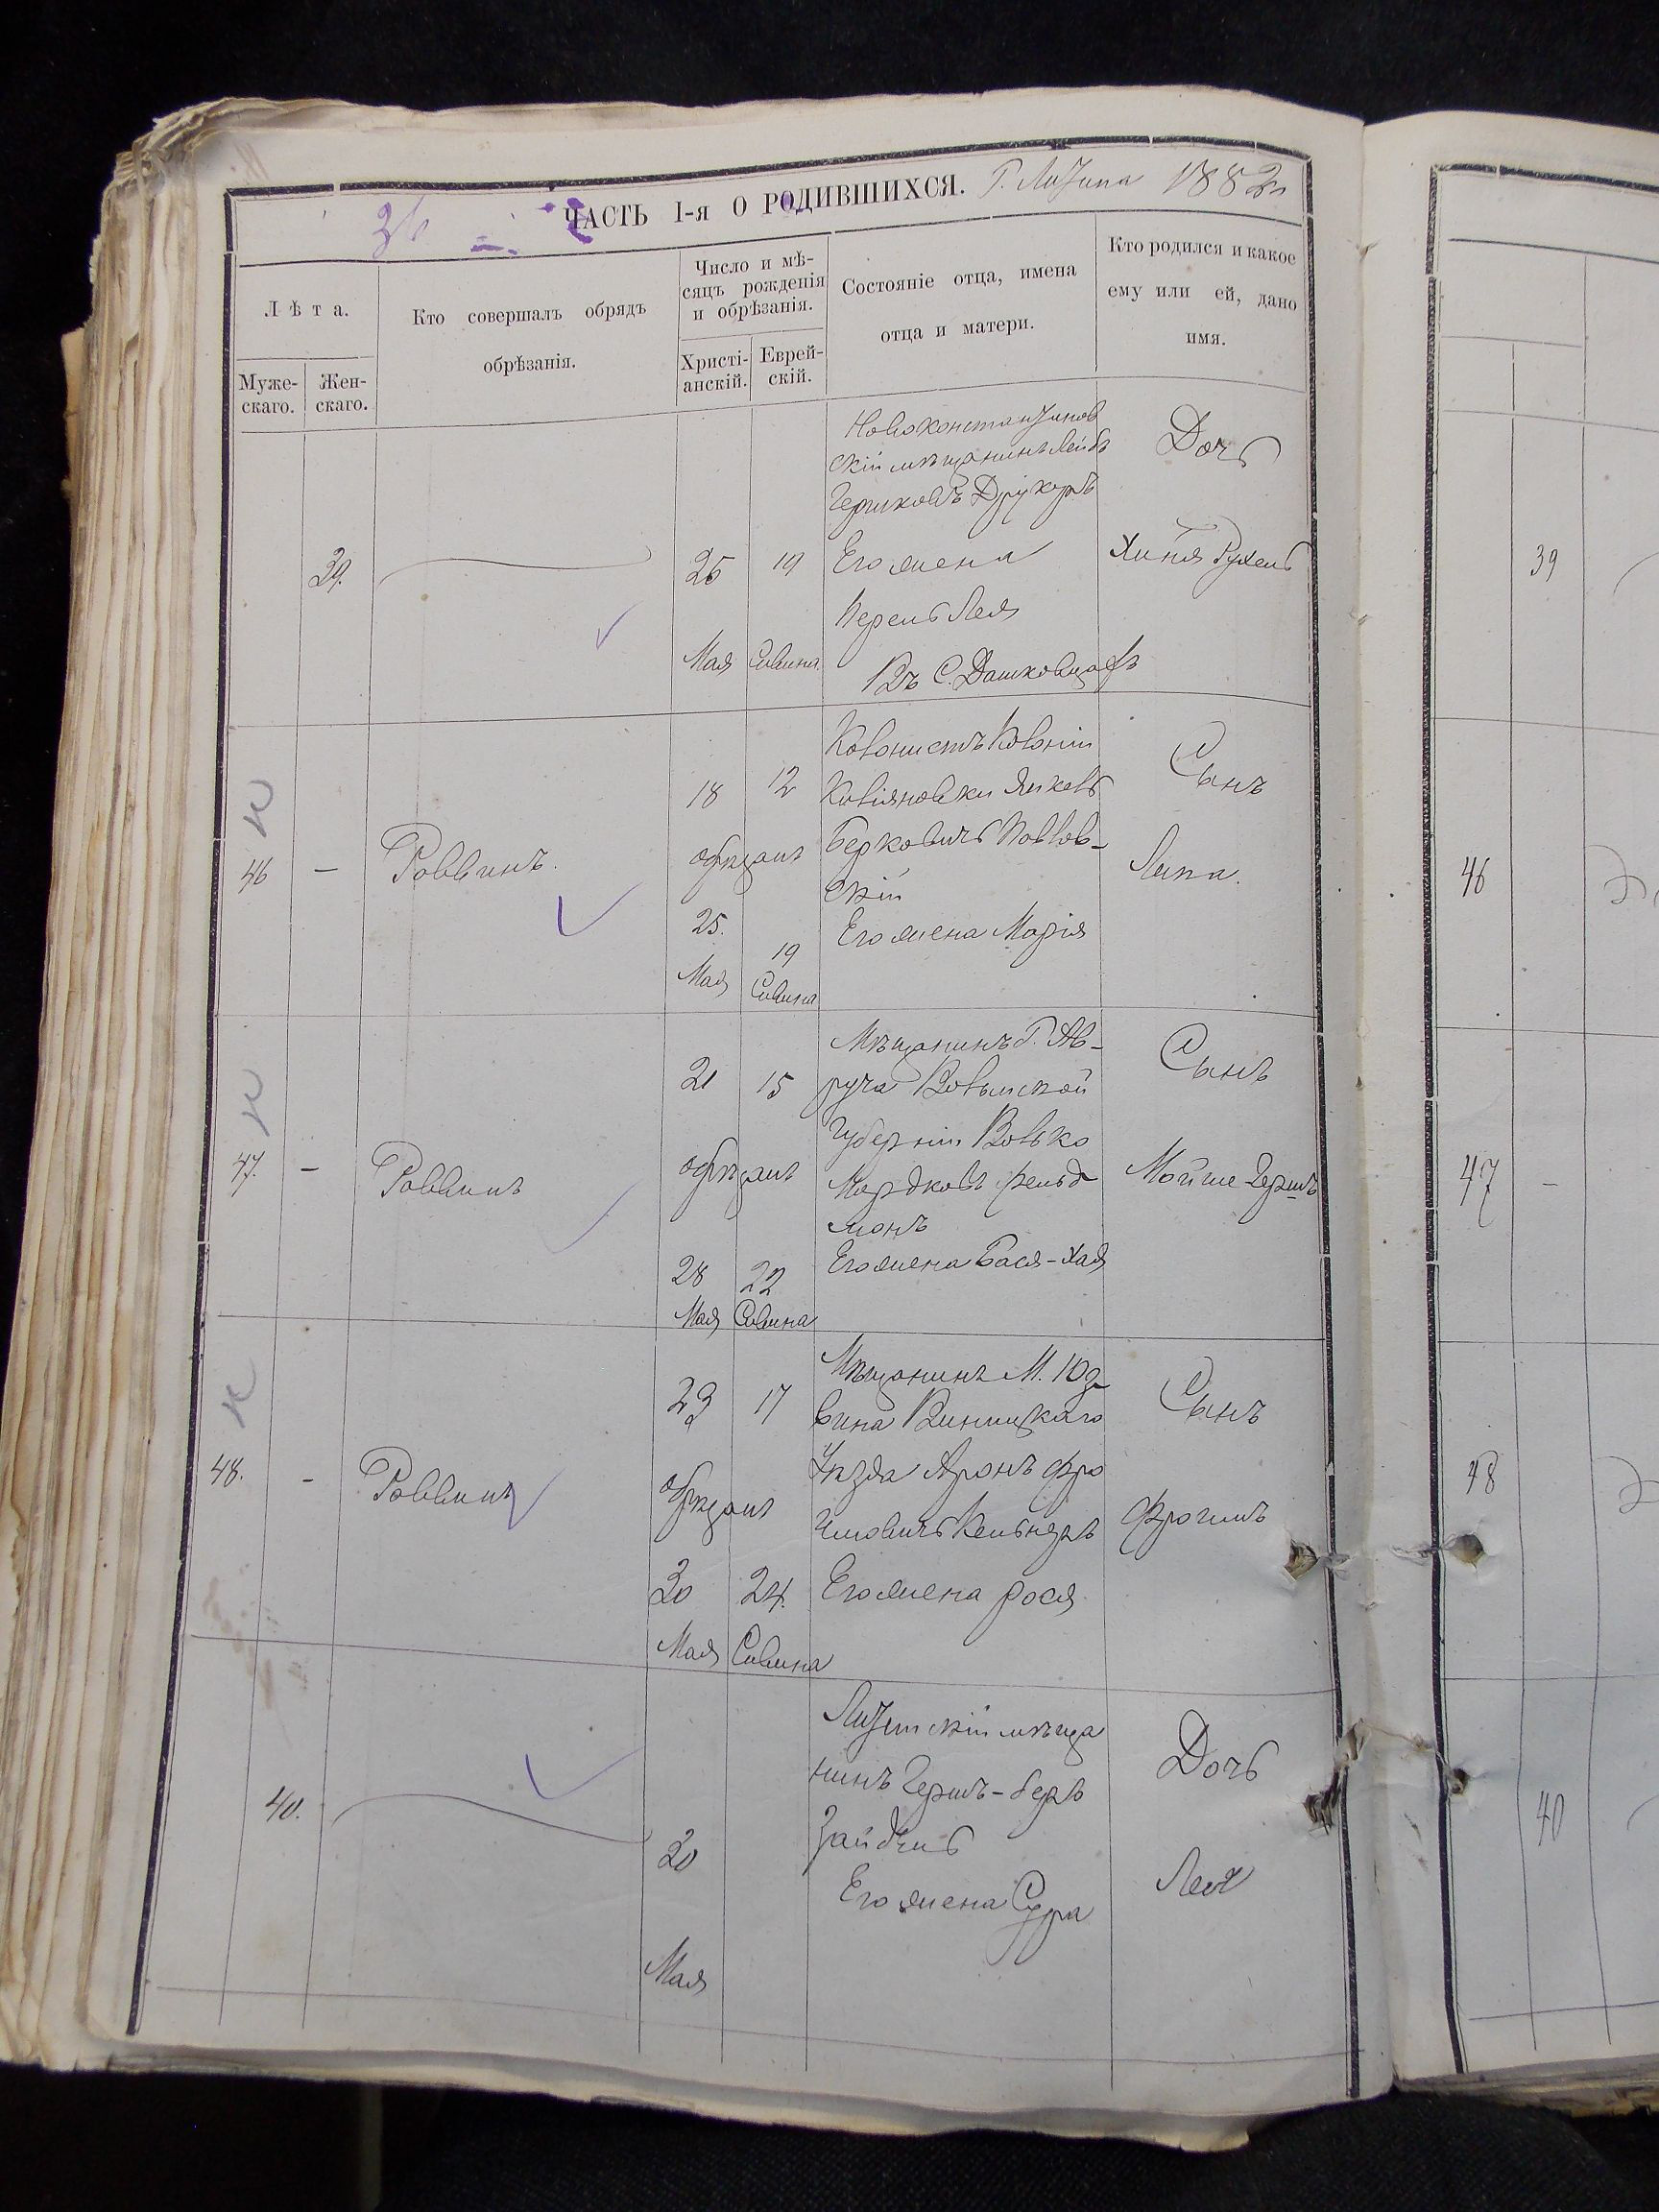 ЧАСТЬ I-я О РОДИВШИХСЯ. Г. Литина 1882 г.
Лѣта.
Муже-
скаго.
Жен-
скаго.
Кто совершалъ обрядъ
обрѣзанія.
Число и мѣ-
сяцъ рожденія
и обрѣзанія.
Христі-
анскій.
Еврей-
скій.
Состояніе отца, имена
отца и матери.
Кто родился и какое
ему или ей, дано
имя.
39.
25
Мая
19
Сивина
Новоконстантинов
скій мѣщанинъ Лейбъ
Гершковъ Друкаръ
Его жена
Перель Лея
Въ С. Дашковцахъ
Дочь
Хиня Рухель
46
—
Раввинъ.
18
12
обрѣзанъ
25.
Мая
19
Сивина
Колонистъ Колоніи
Янкель
Берковичъ
скій
Его жена Марія
Сынъ
Липа.
47.
—
Раввинъ
21
15
обрѣзанъ
28
22
Мая
Сивина
Мѣщанинъ Г. Ав-
руча Волынской
Губерніи Волько
Мордковъ Фельд
манъ
Его жена Бася-Хая
Сынъ
Мойше Гершъ
48.
-
Раввинъ
23
17
обрѣзанъ
30
24.
Мая
Сивина
Мѣщанинъ М. Юз-
вина Винницкаго
Уѣзда Аронъ Фро
имовичъ Кельнеръ
Его жена Рося
Сынъ
Фроимъ
40.
20
Мая
Литинскій мѣща
нинъ Гершъ-беръ
Его жена Сура
Дочь
Лея
39
46
47
-
48
40